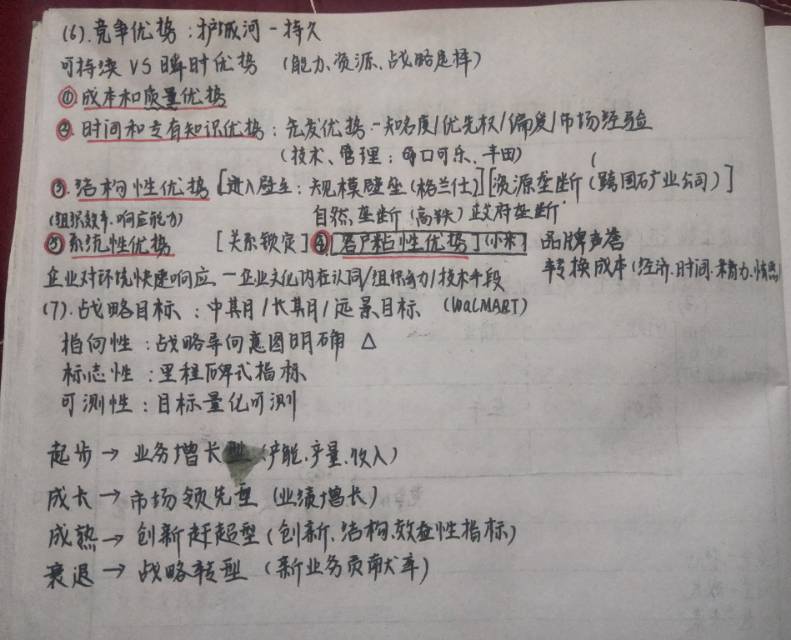 (6).竞争优势：护城河-持久
可持续 VS 瞬时优势 (能力、资源、战略选择)
①.成本和质量优势
②.时间和专有知识优势：先发优势-知名度/优先权/偏度/市场经验
(技术、管理：可口可乐、丰田)
③.结构性优势 [进入壁垒：规模壁垒(格兰仕)][资源垄断(跨国矿业公司)]
(组织效率.响应能力) 自然垄断(高铁) 政府垄断
⑤系统性优势 [关系锁定] ④[客户粘性优势](小米) 品牌声誉
企业对环境快速响应-企业文化内在认同/组织能力/技术手段 转换成本(经济.时间.精力.情感)
(7).战略目标：中期目/长期目/远景目标 (WaLMART)
指向性：战略导向意图明确 △
标志性：里程碑式指标
可测性：目标量化可测
起步→业务增长型(产能.产量.收入)
成长→市场领先型(业绩增长)
成熟→创新赶超型(创新、结构、效益性指标)
衰退→战略转型(新业务贡献率)